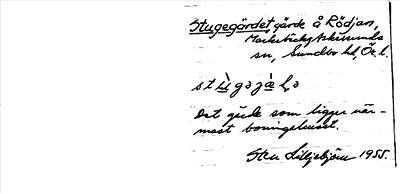 Stugegärdet gärde å Rödjan,
Markebäck, Askersunds
sn, Sundbo hd, Ör. l.
Det gärde som ligger när-
mast boningshuset.
Sten Lilljebjörn 1955.